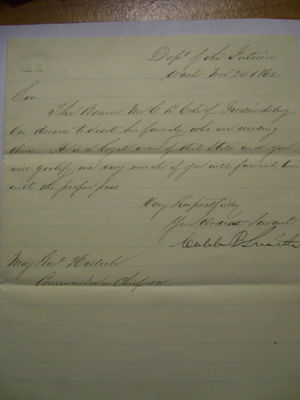 Dept of the Interior
Wash Nov 24 1862
Sir
The Bearer Mr C. Cole of Fredericksburg
Va desires to visit his family who are residing
there. He is a loyal man of that State and you
will gratify me very much if you will furnish him
with the proper pass
Very Respectfully
Your Obedient Servant
Caleb B Smith
Maj Genl Halleck
Commander in Chief